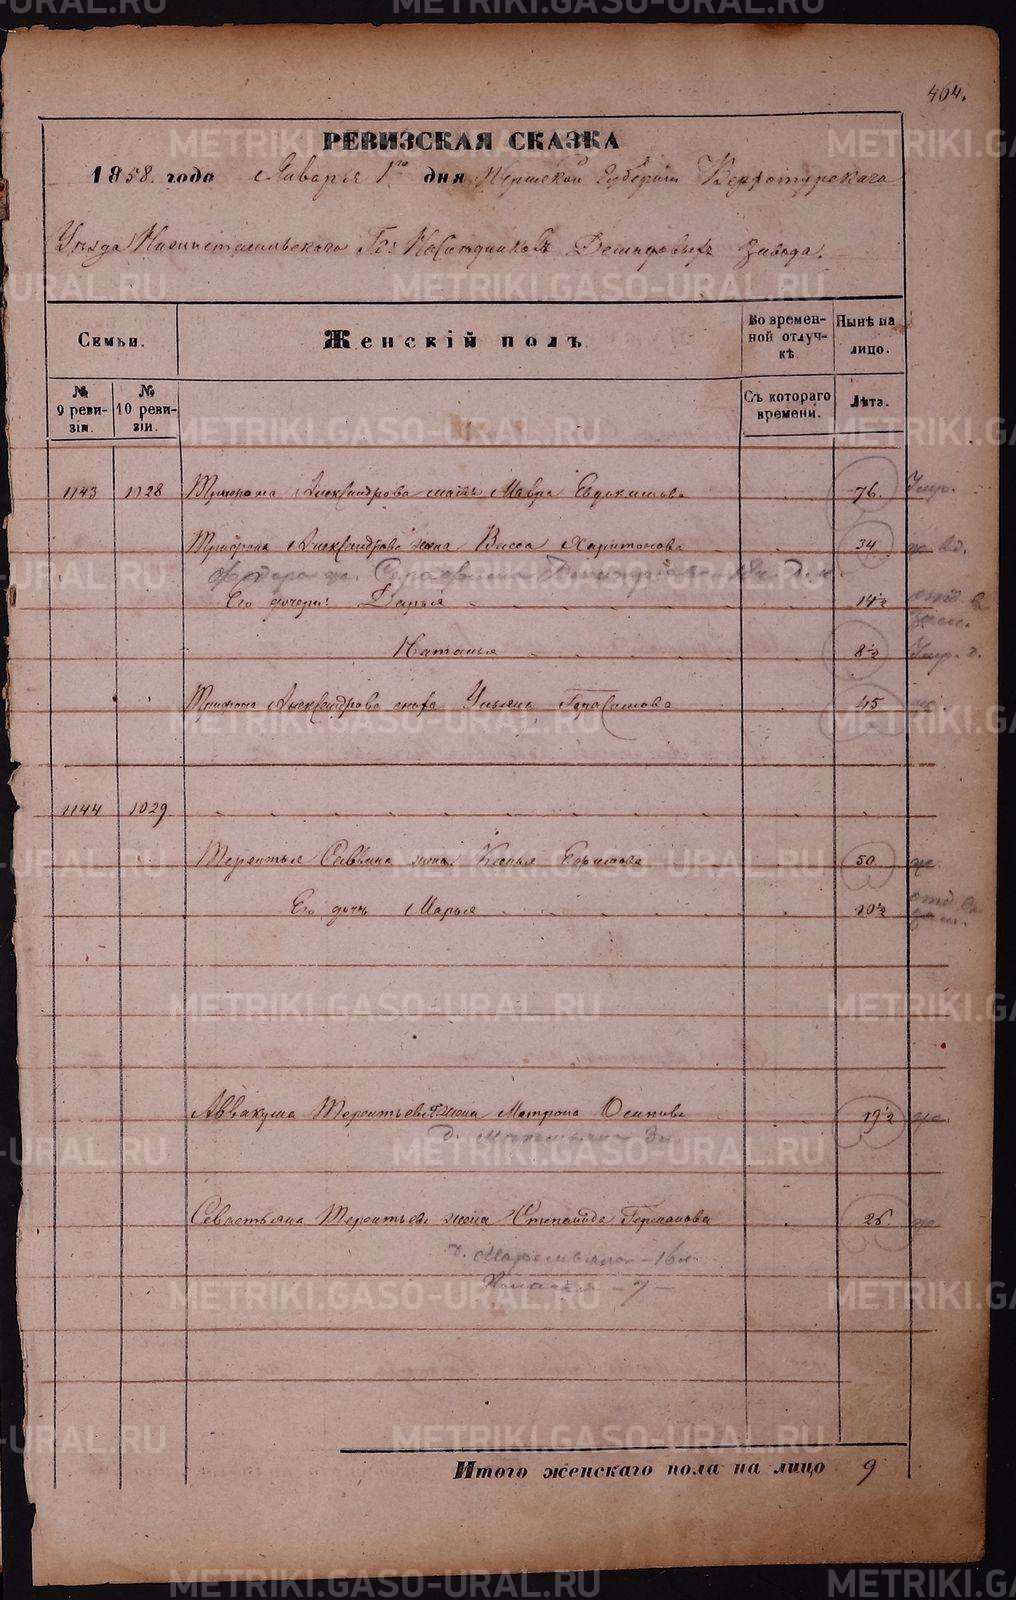 464.
РЕВИЗСКАЯ СКАЗКА
1858. года Января 1го дня Пермской Губернии Верхотурскаго
Уѣзда Нижнетагильскаго Гг: Наслѣдниковъ Демидовыхъ завода.
Семьи.
Женскій полъ.
Во времен-
ной отлуч-
кѣ.
Нынѣ на
лицо.
№
9 реви-
зіи.
№
10 реви-
зіи.
Съ котораго
времени.
Лѣта.
1143 1028 Трифона Александрова мать Мавра Евдокимова 76. Умр.
Трифона Александрова жена Васса Харитонова 34
Серафима
Его дочери: Дарья 14½
Наталья 8½ Умр.
Трифона Александрова сноха Ульяна Герасимова 45
1144 1029
Терентья Саввина жена Ксенья Борисова 50
Его дочь Марья 20½
Аввакума Терентьева жена Матрона Осипова 19½
Севастьяна Терентьева жена Степанида Германова 26.
Итого женскаго пола на лицо 9
METRIKI.GASO-URAL.RU